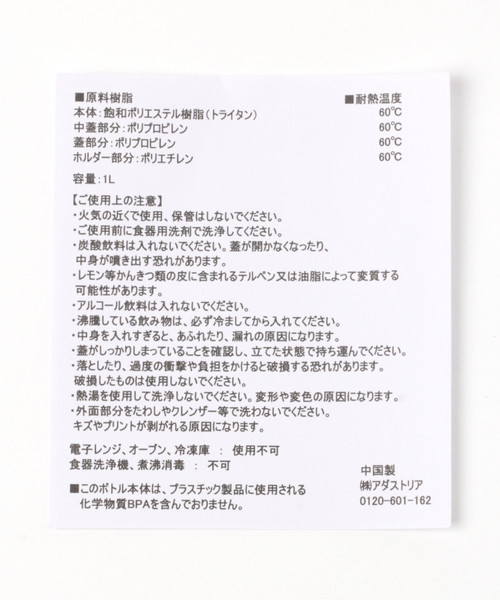 ■原料樹脂 ■耐熱温度
本体：飽和ポリエステル樹脂（トライタン） 60℃
中蓋部分：ポリプロピレン 60℃
蓋部分：ポリプロピレン 60℃
ホルダー部分：ポリエチレン 60℃
容量：1L
【ご使用上の注意】
・火気の近くで使用、保管はしないでください。
・ご使用前に食器用洗剤で洗浄してください。
・炭酸飲料は入れないでください。蓋が開かなくなったり、
中身が噴き出す恐れがあります。
・レモン等かんきつ類の皮に含まれるテルペン又は油脂によって変質する
可能性があります。
・アルコール飲料は入れないでください。
・沸騰している飲み物は、必ず冷ましてから入れてください。
・中身を入れすぎると、あふれたり、漏れの原因になります。
・蓋がしっかりしまっていることを確認し、立てた状態で持ち運んでください。
・落としたり、過度の衝撃や負担をかけると破損する恐れがあります。
破損したものは使用しないでください。
・熱湯を使用して洗浄しないでください。変形や変色の原因になります。
・外面部分をたわしやクレンザー等で洗わないでください。
キズやプリントが剥がれる原因になります。
電子レンジ、オーブン、冷凍庫 ： 使用不可
食器洗浄機、煮沸消毒 ： 不可
■このボトル本体は、プラスチック製品に使用される
化学物質BPAを含んでおりません。
中国製
㈱アダストリア
0120-601-162